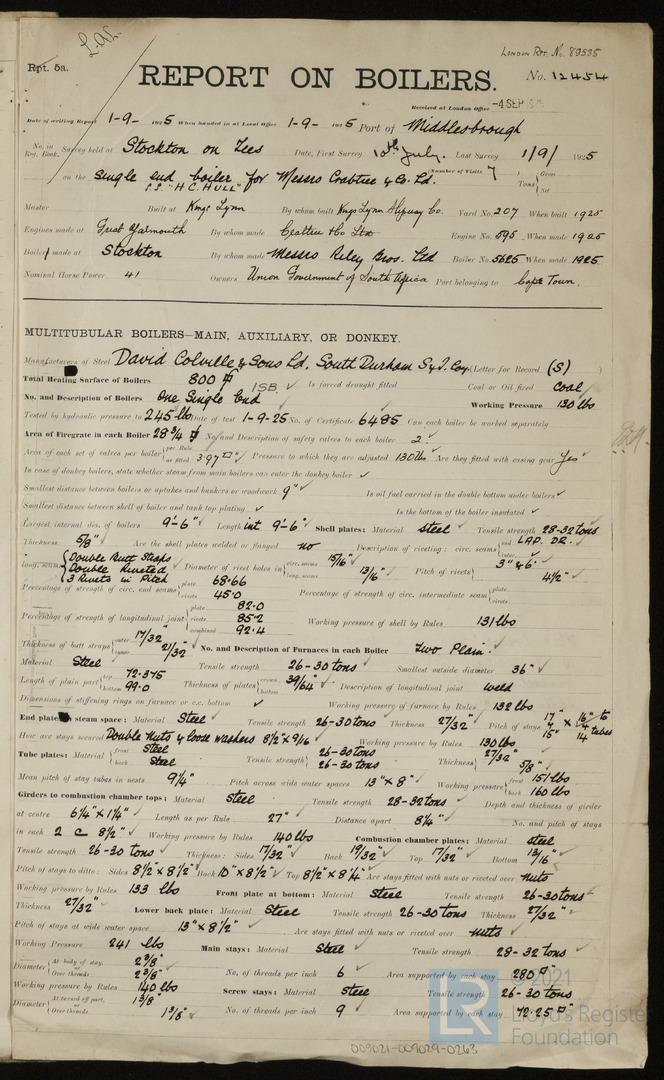 L.A.L.
London Rpt. No. 89535
Rpt. 5a.
REPORT ON BOILERS.
No. 12454
Received at London Office -4 SEP
Date of writing Report 1-9- 1925 When handed in at Local Office 1-9- 1925 Port of Middlesbrough
No. in Reg. Book. Survey held at Stockton on Tees Date, First Survey 10th July. Last Survey 1/9/ 1925
on the single end boiler for Messrs Crabtree & Co. Ld. (Number of Visits 7) Tons Gross Net
S.S. "H.C. HULL"
Master Built at Kings Lynn By whom built Kings Lynn Slipway Co. Yard No. 207 When built 1925
Engines made at Great Yarmouth By whom made Crabtree & Co Ltd Engine No. 595 When made 1925
Boiler made at Stockton By whom made Messrs Riley Bros. Ltd Boiler No. 5625 When made 1925
Nominal Horse Power 41 Owners Union Government of South Africa Port belonging to Cape Town.
MULTITUBULAR BOILERS—MAIN, AUXILIARY, OR DONKEY.
Manufacturers of Steel David Colville & Sons Ld. South Durham S & I. Coy (Letter for Record (S) )
Total Heating Surface of Boilers 800 Is forced draught fitted Coal or Oil fired Coal
1SB.
No. and Description of Boilers One Single End Working Pressure 130 lbs
Tested by hydraulic pressure to 245 lbs Date of test 1-9-25 No. of Certificate 6485 Can each boiler be worked separately
Area of Firegrate in each Boiler 28 3/4 No. and Description of safety valves to each boiler 2
Area of each set of valves per boiler per Rule as fitted 3.97 Pressure to which they are adjusted 130 lbs Are they fitted with easing gear Yes
In case of donkey boilers, state whether steam from main boilers can enter the donkey boiler
Smallest distance between boilers or uptakes and bunkers or woodwork 9" Is oil fuel carried in the double bottom under boilers
Smallest distance between shell of boiler and tank top plating Is the bottom of the boiler insulated
Largest internal dia. of boilers 9'-6" Length int. 9'-6" Shell plates: Material steel Tensile strength 28-32 tons
Thickness 5/8" Are the shell plates welded or flanged no Description of riveting: circ. seams end LAP. DR. inter.
long. seams Double Butt Straps Double Riveted 3 Rivets in Pitch Diameter of rivet holes in circ. seams 15/16" long. seams 13/16" Pitch of rivets 3" & 6" 4 1/2"
Percentage of strength of circ. end seams plate 68.66 rivets 45.0 Percentage of strength of circ. intermediate seam plate rivets
Percentage of strength of longitudinal joint plate 82.0 rivets 85.2 combined 92.4 Working pressure of shell by Rules 131 lbs
Thickness of butt straps outer 17/32" inner 21/32" No. and Description of Furnaces in each Boiler Two Plain.
Material Steel Tensile strength 26-30 tons Smallest outside diameter 36"
Length of plain part top 72.375 bottom 99.0 Thickness of plates crown bottom 39/64" Description of longitudinal joint weld
Dimensions of stiffening rings on furnace or c.c. bottom Working pressure of furnace by Rules 132 lbs
End plates in steam space: Material Steel Tensile strength 26-30 tons Thickness 27/32" Pitch of stays 17" 15" × 16" 14 to tubes
How are stays secured Double Nuts & loose washers 8 1/2 × 9/16 Working pressure by Rules 130 lbs
Tube plates: Material front Steel back Steel Tensile strength 26-30 tons 26-30 tons Thickness 27/32" 5/8"
Mean pitch of stay tubes in nests 9 1/4" Pitch across wide water spaces 13" × 8" Working pressure front 151 lbs back 160 lbs
Girders to combustion chamber tops: Material Steel Tensile strength 28-32 tons Depth and thickness of girder
at centre 6 1/4" × 1 1/4" Length as per Rule 27" Distance apart 8 1/4" No. and pitch of stays
in each 2 @ 8 1/2" Working pressure by Rules 140 lbs Combustion chamber plates: Material steel
Tensile strength 26-30 tons Thickness: Sides 17/32" Back 19/32" Top 17/32" Bottom 13/16"
Pitch of stays to ditto: Sides 8 1/2 × 8 1/2" Back 10" × 8 1/2" Top 8 1/2" × 8 1/4" Are stays fitted with nuts or riveted over nuts
Working pressure by Rules 133 lbs Front plate at bottom: Material Steel Tensile strength 26-30 tons
Thickness 27/32" Lower back plate: Material Steel Tensile strength 26-30 tons Thickness 27/32"
Pitch of stays at wide water space 13" × 8 1/2" Are stays fitted with nuts or riveted over nuts
Working Pressure 241 lbs Main stays: Material Steel Tensile strength 28-32 tons
Diameter At body of stay, 2 3/8" or Over threads 2 3/8" No. of threads per inch 6 Area supported by each stay 280
Working pressure by Rules 140 lbs Screw stays: Material Steel Tensile strength 26-30 tons
Diameter At turned off part, 1 3/8" or Over threads 1 3/8" No. of threads per inch 9 Area supported by each stay 72.25
© 2021
LR Lloyd's Register
Foundation
009021-009029-0263